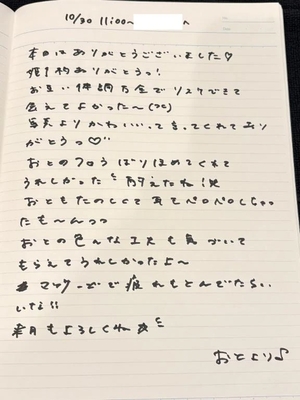 10/30 11:00〜 へ
本日はありがとうございました♡
指名ありがとうっ!
お互い体調万全でリスケできて
会えてよかった〜
写真よりかわいいって言ってくれてあり
がとうっ♡
おとのフロうばりほめてくれて
うれしかった
おともたのしくて耳てペロペロしちゃっ
たも〜んっっ
おとの色んな工夫も気づいて
もらえてうれしかったよ〜
マッサージで疲れもとんでたらい
いな!!
来月もよろしくね
おとより♪